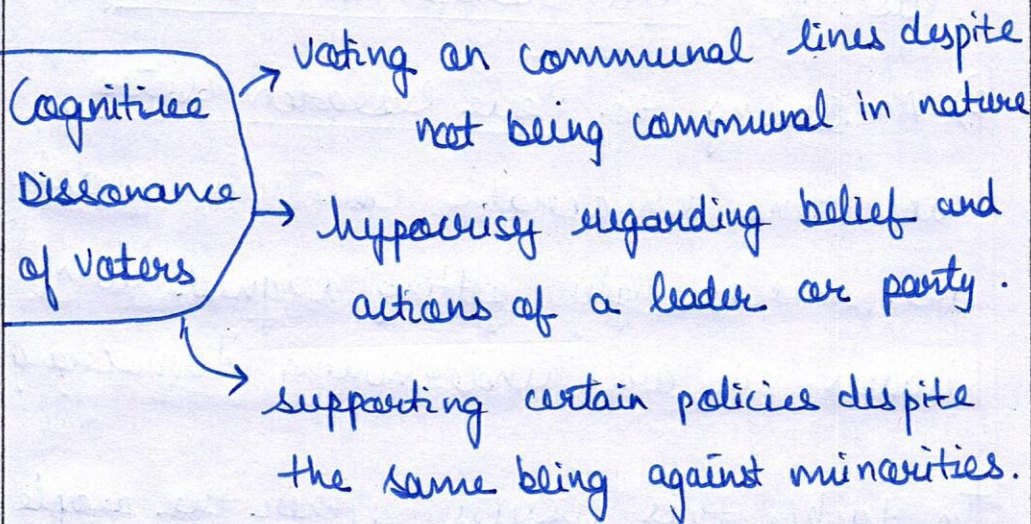 Cognitive
Dissonance
of voters
→ voting on communal lines despite
not being communal in nature
→ hypocrisy regarding belief and
actions of a leader or party.
→ supporting certain policies despite
the same being against minorities.